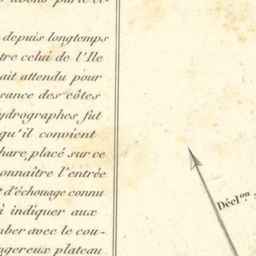 depuis longtemps
tre celui de l'Ile
ait attendu pour
sance des côtes
ydrographes fut
qu'il convient
hare, placé sur ce
onnaître l'entrée
t d'échouage connu
à indiquer aux
ber avec le cou-
ngereux plateau
Décl.on